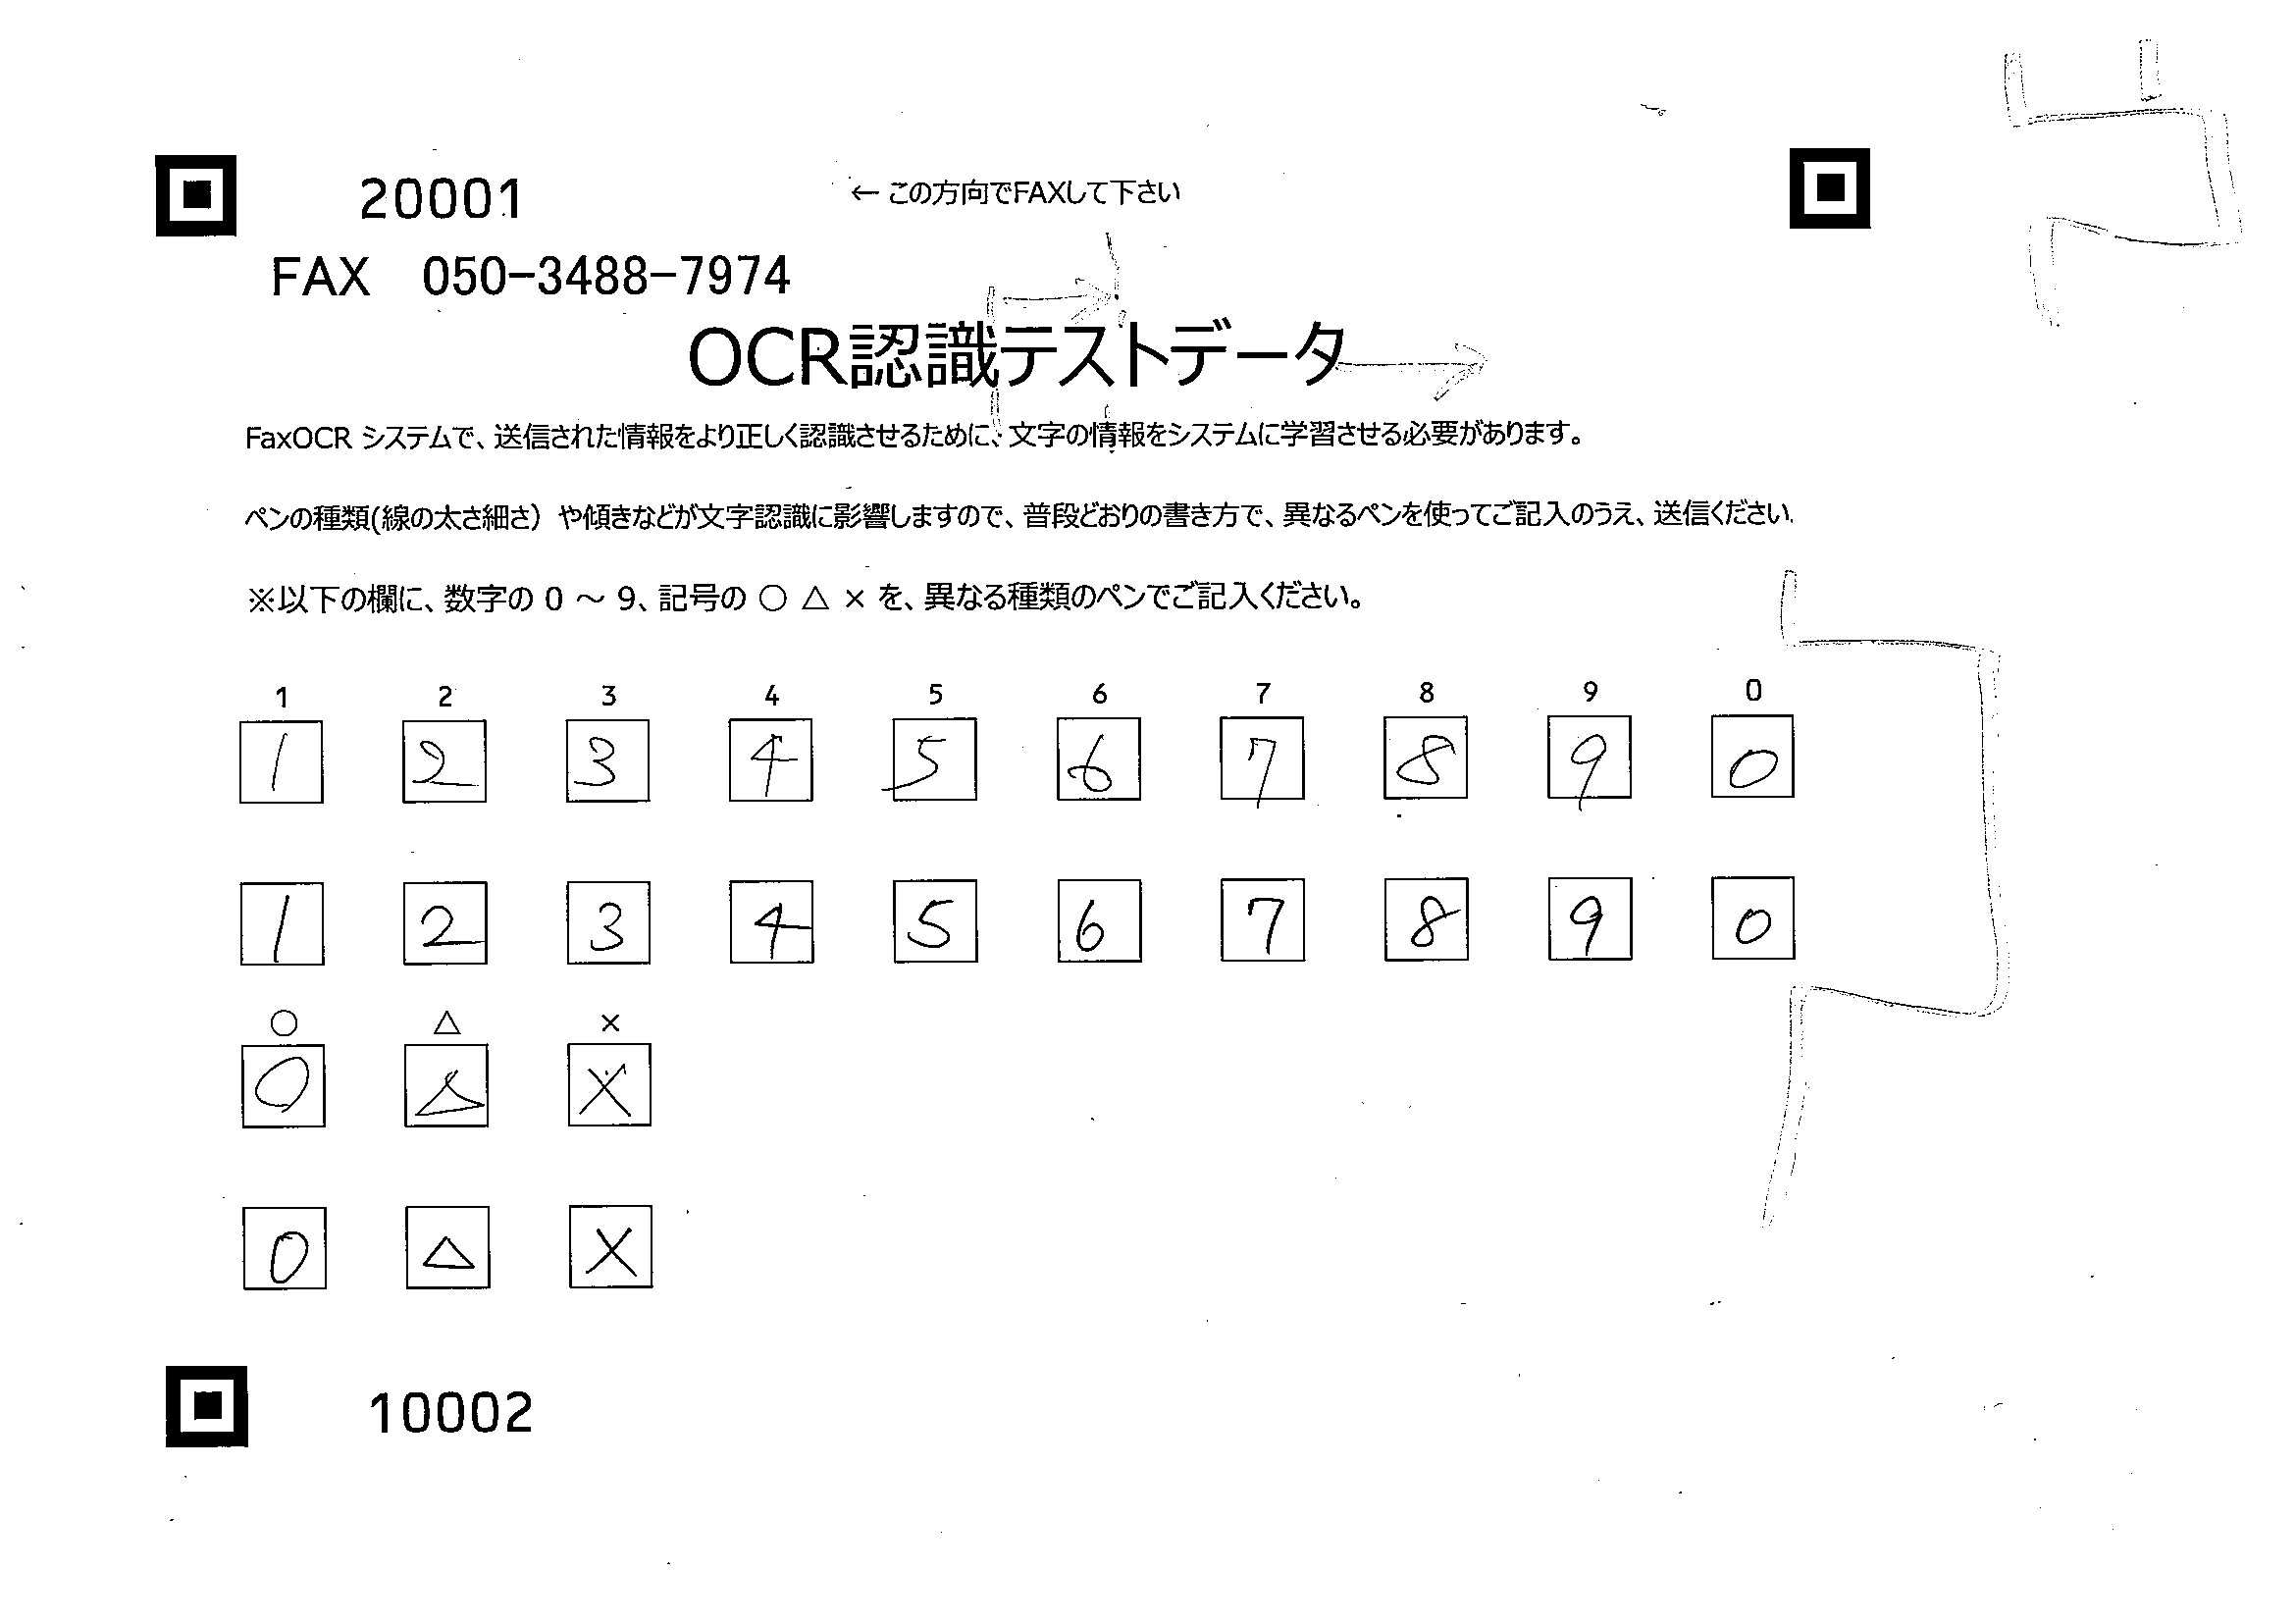 20001
← この方向でFAXして下さい
FAX 050-3488-7974
OCR認識テストデータ
FaxOCR システムで、送信された情報をより正しく認識させるために、文字の情報をシステムに学習させる必要があります。
ペンの種類(線の太さ細さ）や傾きなどが文字認識に影響しますので、普段どおりの書き方で、異なるペンを使ってご記入のうえ、送信ください。
※以下の欄に、数字の 0 ～ 9、記号の ○ △ × を、異なる種類のペンでご記入ください。
1 2 3 4 5 6 7 8 9 0
1 2 3 4 5 6 7 8 9 0
1 2 3 4 5 6 7 8 9 0
○ △ ×
○ △ ×
○ △ ×
10002